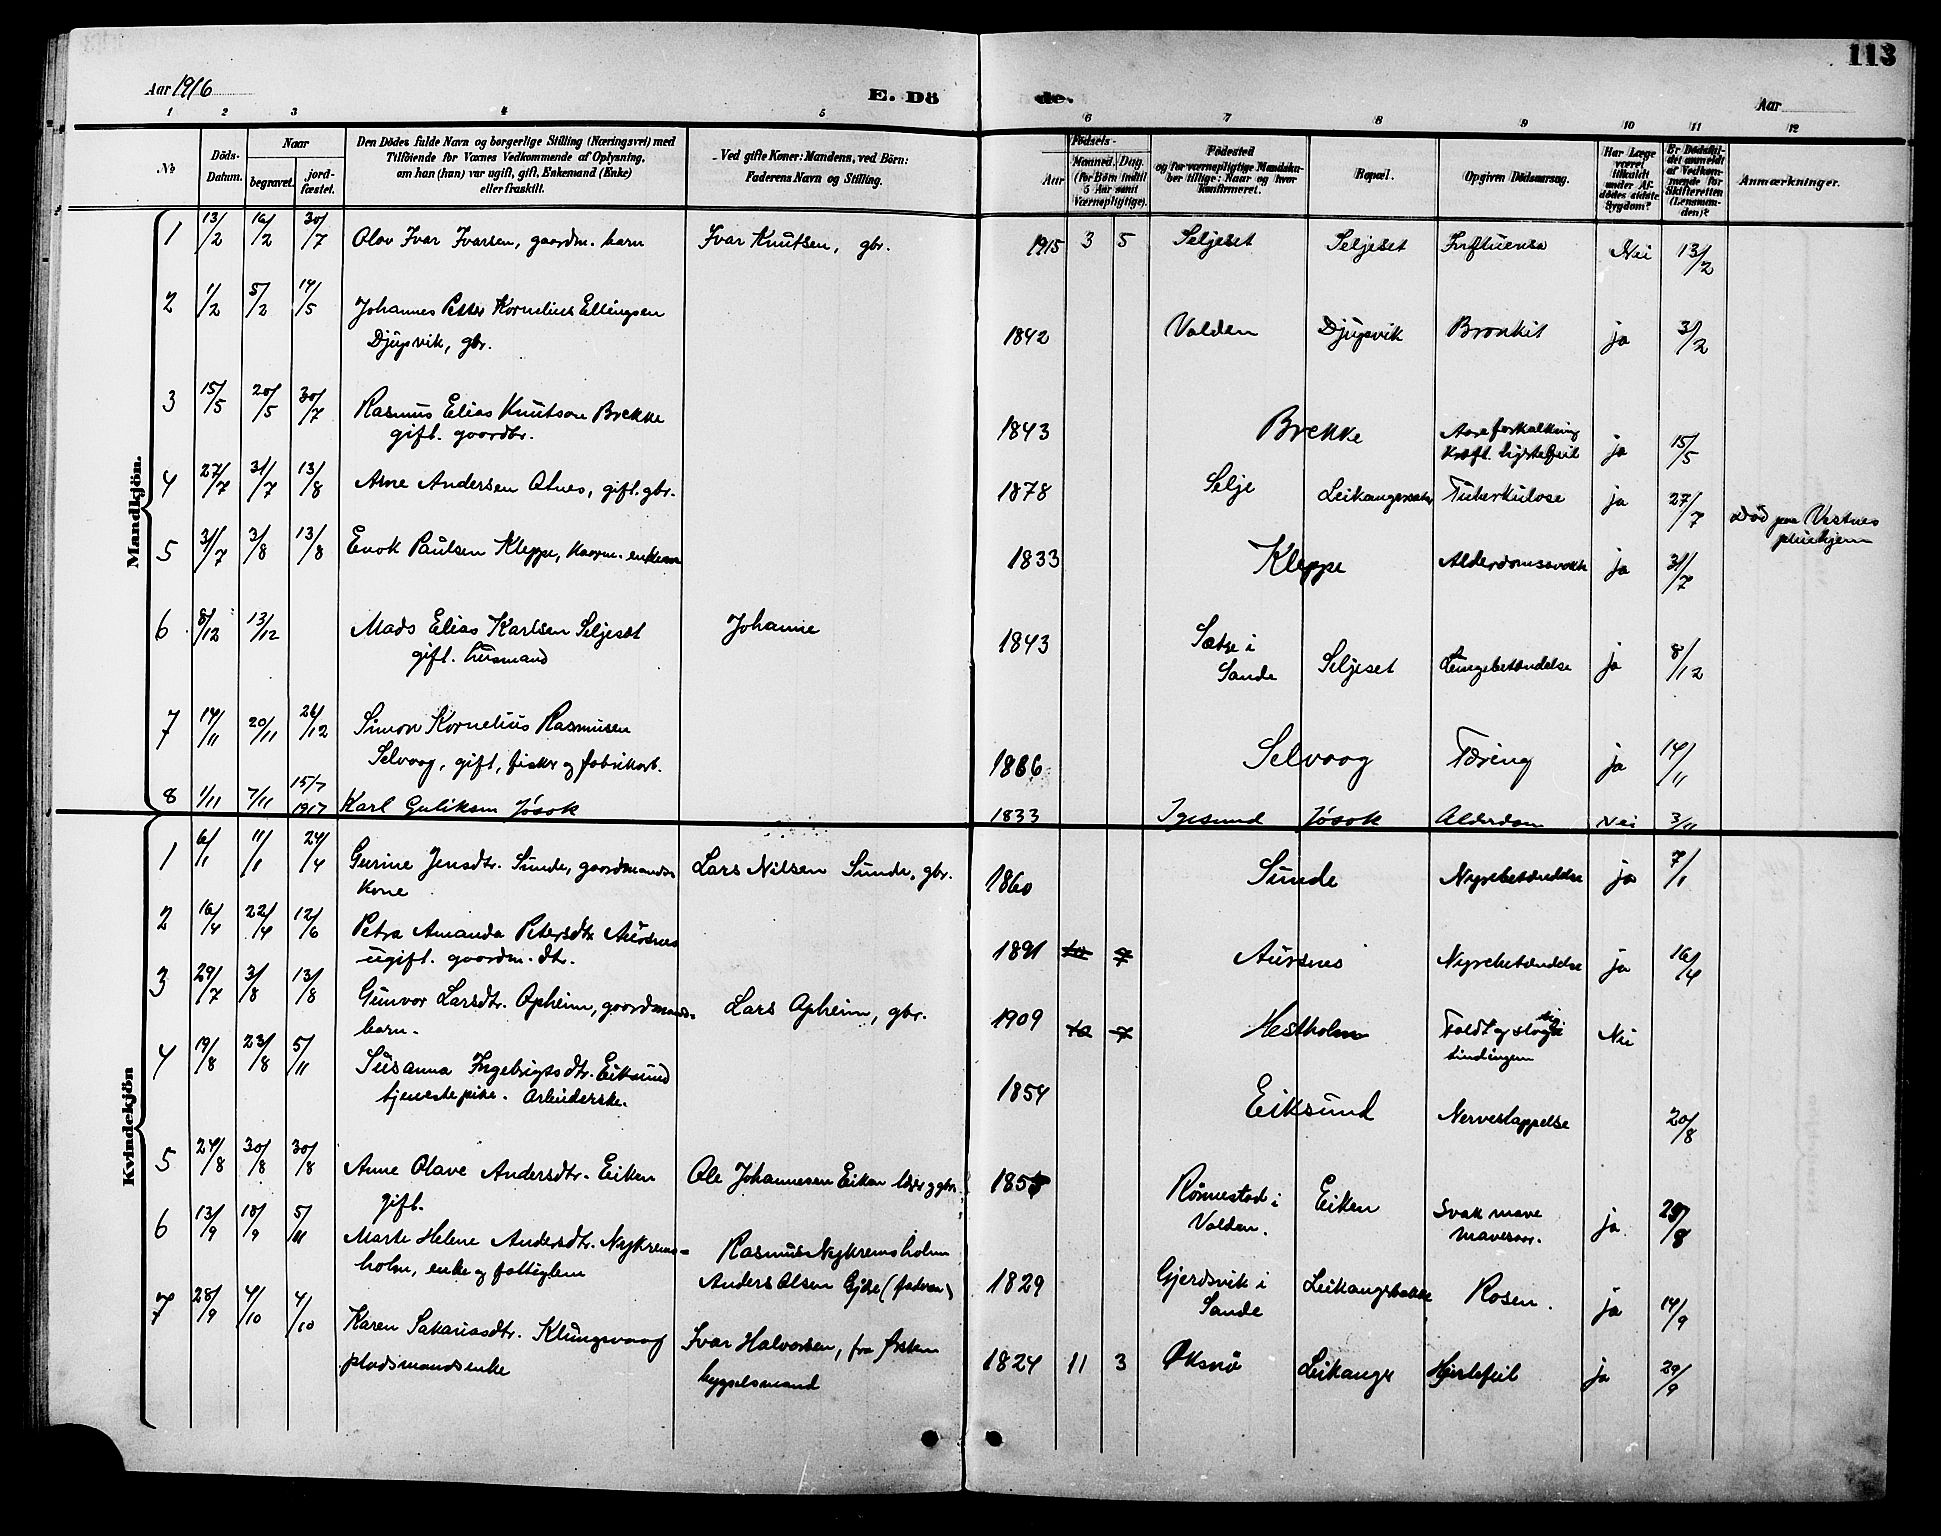 113
Aar 1916
E. Dö de.
Aar
1 2 3 4 5 6 7 8 9 10 11 12
No
Döds-Datum.
Naar
begravet.
jord-fæstet.
Den Dödes fulde Navn og borgerlige Stilling (Næringsvei) med
Tilföiende for Værnes Vedkommende af Oplysning,
om han (han) var ugift, gift, Enkemand (Enke)
eller fraskilt.
Ved gifte Koner: Mandens, ved Börn:
Faderens Navn og Stilling.
Födsels-
Aar
Maaned. Dag.
(for Börn indtil
5 Aar samt
Værnepligtige).
Födested
og for værnepligtige Mandska-
ber tillige: Naar og hvor
konfirmeret.
Bopæl.
Opgiven Dödsaarsag.
Har Læge
været
tilkaldt
under Af-
dödes sidste
Sygdom?
Er Dödsfal-
det anmeldt
af Vedkom-
mende for
Skifteretten
(Lensman-
den)?
Anmærkninger.
Mandkjön.
1 13/2 16/2 30/7 Olav Ivar Ivarsen, gaardm. barn Ivar Knutsen, gbr. 1915 3 5 Seljeset Seljeset Influensa Nei 13/2
2 1/2 5/2 14/5 Johannes Petter Kornelius Ellingsen
Djupvik, gbr. 1842 Volden Djupvik Bronkit ja 3/2
3 15/5 20/5 30/7 Rasmus Elias Knutson Brekke
gift. gaardbr. 1843 Brekke Aareforkalkning
ja 15/5
4 27/7 31/7 13/8 Arne Andersen Alnes, gift. gbr. 1878 Selje Tuberkulose ja 27/7 Død paa Vestnes
pleiehjem
5 31/7 3/8 13/8 Enok Paulsen Kleppe, 1833 Kleppe ja 31/7
6 8/12 13/12 Mads Elias Karlsen Seljeset Johanne
gift. husmand 1843 Sætre i
Sande Seljeset Lungebetændelse ja 8/12
7 14/11 20/11 26/12 Simon Kornelius Rasmusen
Selvaag, gift, fisker og fabrikarb. 1866 Selvaag Tæring ja 14/11
8 1/11 7/11 15/7 1917 Karl Guliksen Jøsok 1833 Igesund Jøsok Alderdom Nei 3/11
Kvindekjön
1 6/1 11/1 24/4 Gurine Jensdtr. Sunde, gaardmands
kone Lars Nilsen Sunde, gbr. 1860 Sunde Nyrebetændelse ja 7/1
2 16/4 22/4 12/6 Petra Amanda Petersdtr Aursnes
ugift. gaardm. dtr. 1891 Aursnes Nyrebetændelse ja 16/4
3 29/7 3/8 13/8 Gunvor Larsdtr. Opheim, gaardmands-
barn. Lars Opheim, gbr. 1909 Hestholm Faldt og slog sig
i tindingen Nei
4 19/8 23/8 5/11 Susanna Ingebrigtsdtr. Eiksund
tjenestepike. Arbeiderske. 1854 Eiksund Nerveslappelse 20/8
5 24/8 30/8 30/8 Anne Olave Andersdtr. Eiken
gift. Ole Johannesen Eiken 1855 Rønnestad i
Volden. Eiken Svak mave
mavesaar. ja. 29/8
6 13/9 18/9 5/11 Marte Helene Andersdtr. Nykrems-
holm, enke og fattiglem Rasmus Nykremsholm
Anders Olsen (faderen) 1829 Gjerdsvik i
Sande Leikangsbakke Rosen. ja 14/9
7 28/9 4/10 4/10 Karen Sakariasdtr. Klungsvaag
pladsmandsenke Ivar Halvorsen, fra Ørsten
bygselsmand 1824 11 3 Øksnø Leikanger Hjertefeil ja 29/9